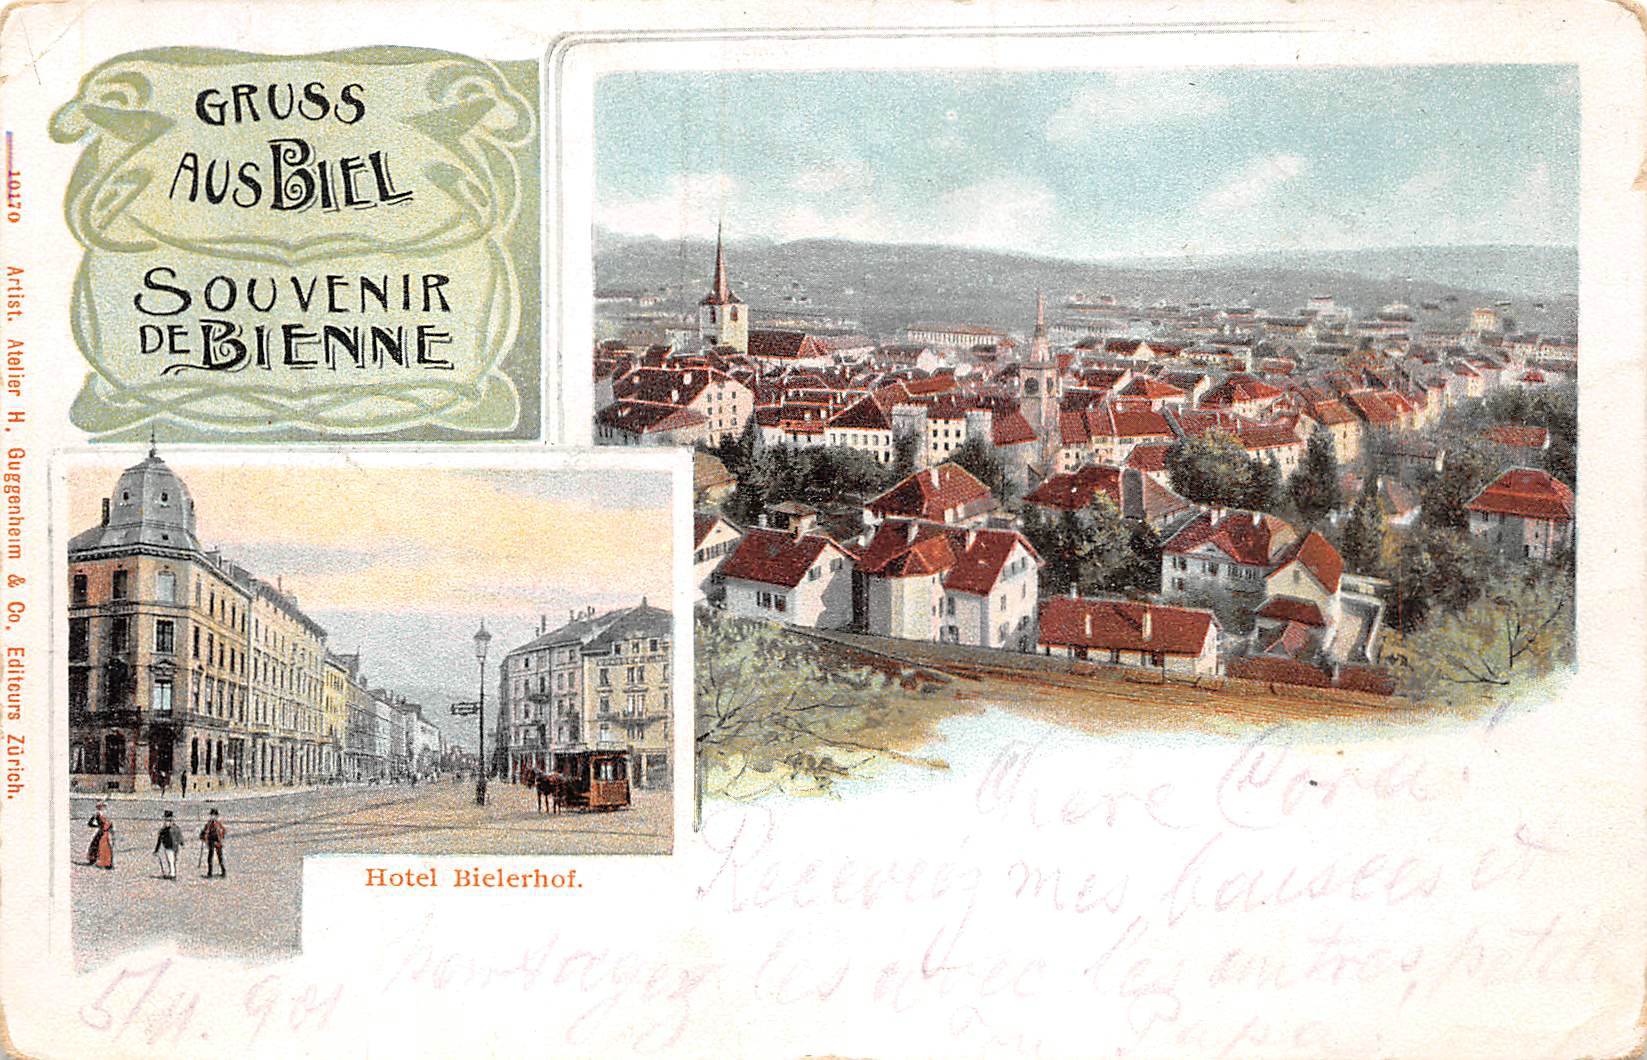 GRUSS
AUS BIEL
SOUVENIR
DE BIENNE
10170 Artist. Atelier H. Guggenheim & Co. Editeurs Zürich.
Hotel Bielerhof.
Chère Cora!
mes baisées et
les avec les autres,
Papa.